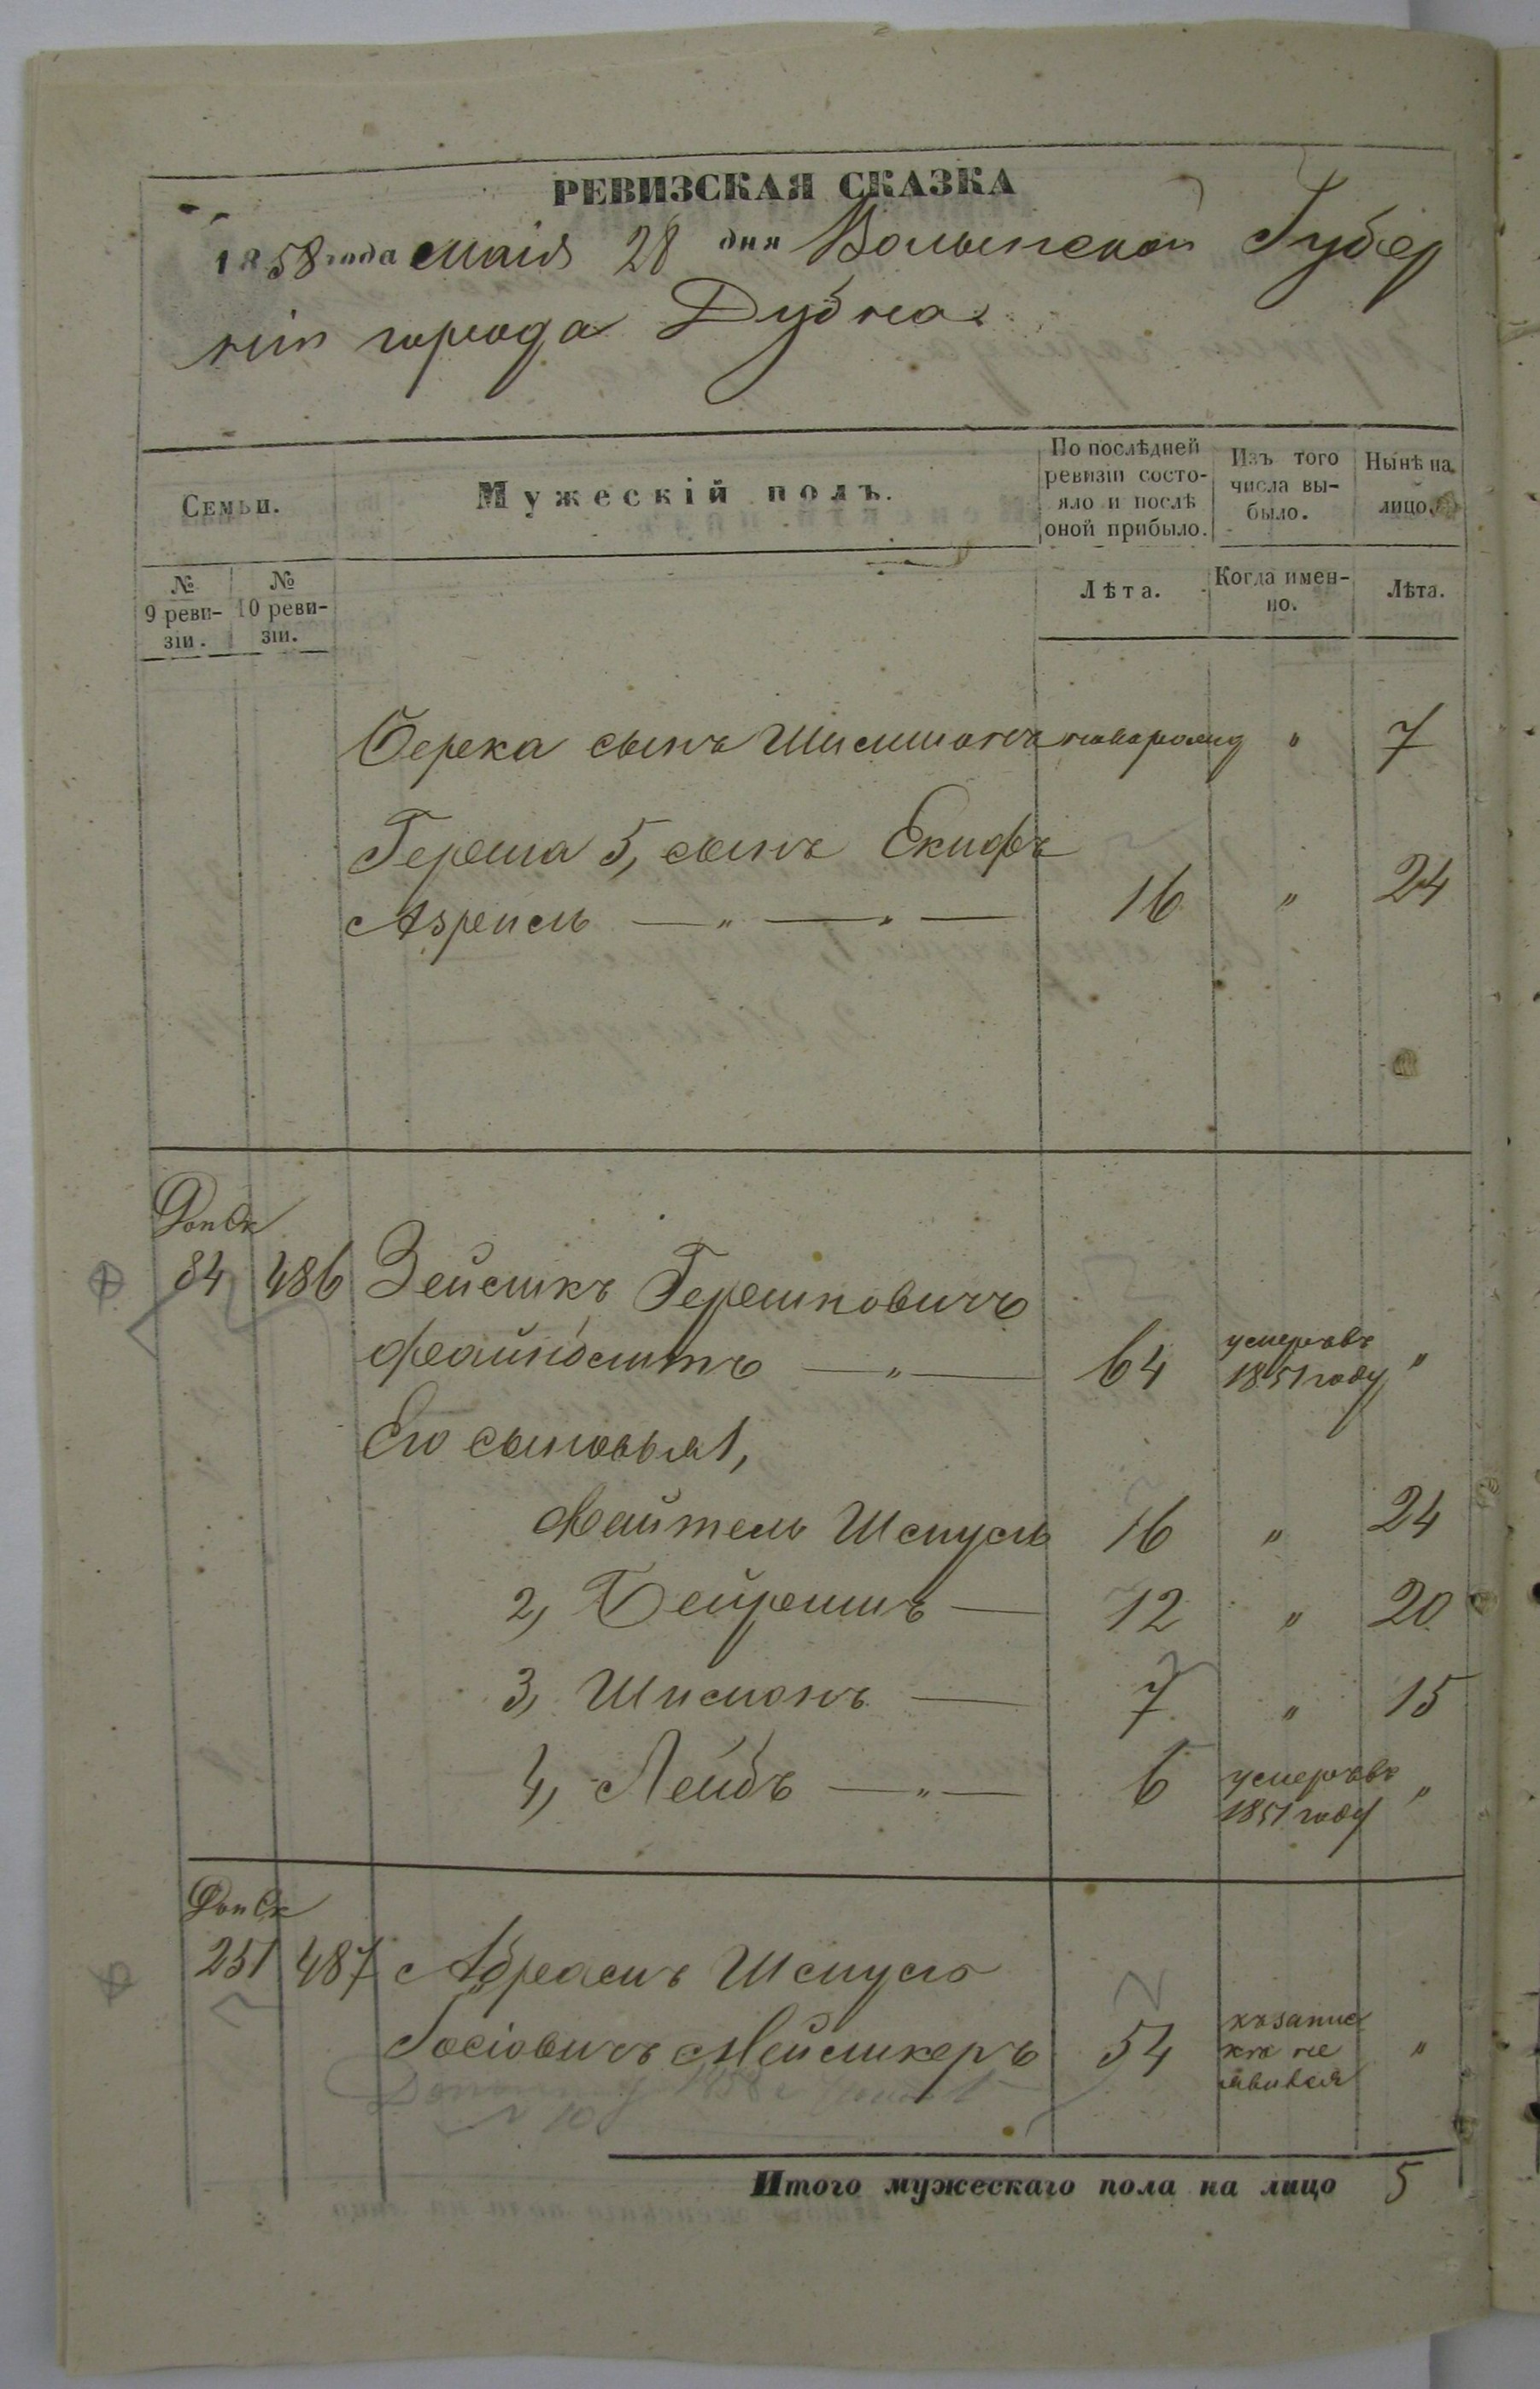 РЕВИЗСКАЯ СКАЗКА
1858 года Маія 28 дня Волынской Губер
ніи города Дубна
Семьи.
Мужескій полъ.
По послѣдней ревизіи состо-
яло и послѣ
оной прибыло.
Изъ того
числа вы-
было.
Нынѣ на
лицо.
№
9 реви-
зіи.
№
10 реви-
зіи.
Лѣта.
Когда имен-
но.
Лѣта.
Берка сынъ Шислионъ новорожд " 7
Герша 5, сынъ
Азреиль — " — " — 16 " 24
Доп Ск
84 486 Зейликъ Гершковичъ
— " — 64 умеръ въ
1851 году "
Его сыновья 1,
Файтель Шмуль 16 " 24
2, — 12 " 20
3, Шимонъ — 7 " 15
4, Лейбъ — " — 6 умеръ въ
1851 году "
Доп Ск
251 487 Абрамъ Шмуль
Іосіовичъ 54 къ запис
кѣ не
явился "
Итого мужескаго пола на лицо 5